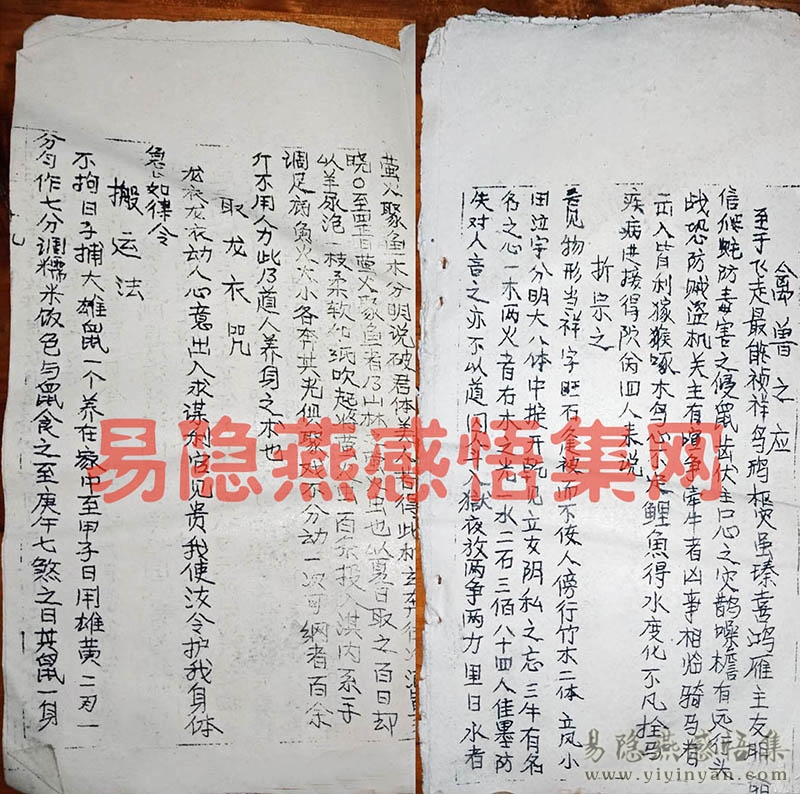 禽兽之应
至于飞走最能祯祥鸟鸦横
喜鸿雁主友
信 蛇防毒害之侵鼠齿犬主口心之灾鹊噪檐有远行头
战恐防贼盗机关主有喧争牵牛者凶事相临骑马者
出入皆利猴猴啄木鸟心不定鲤鱼得水变化不凡拴马
疾病进接得 四人来说
折宗之
吾见物形当祥字旺石 被而不使人傍行竹木二体立风小
田泣字分明大八体中 无既见立女阴私之忘三牛有名
名之心一木两火者右木之光一水二石三佰八十四人佳墨防
失对人言之亦不以道门今斗入狱夜放两争两力里日水者
萤火聚鱼术分明说破君体
晓〇至 萤火聚鱼者乃山林 虫也以夏日取之百日却
以羊尿泡一枝柔软 纸吹起将萤 百余投入淇内系于
调足 鱼火大小各奔其光 聚 不分动一次可纲者百余
斤不用人力此乃道人养身之术也
取龙衣咒
龙衣龙衣动人心意出入求谋利官见贵我使汝令护我身体
急急如律令
搬运法
不拘日子捕大雄鼠一个养在家中至甲子日用雄黄二刃一
分匀作七分调糯米饭包与鼠食之至庚午七煞之日其鼠一身
易隐燕感悟集网
易隐燕感悟集
www.yiyinyan.com